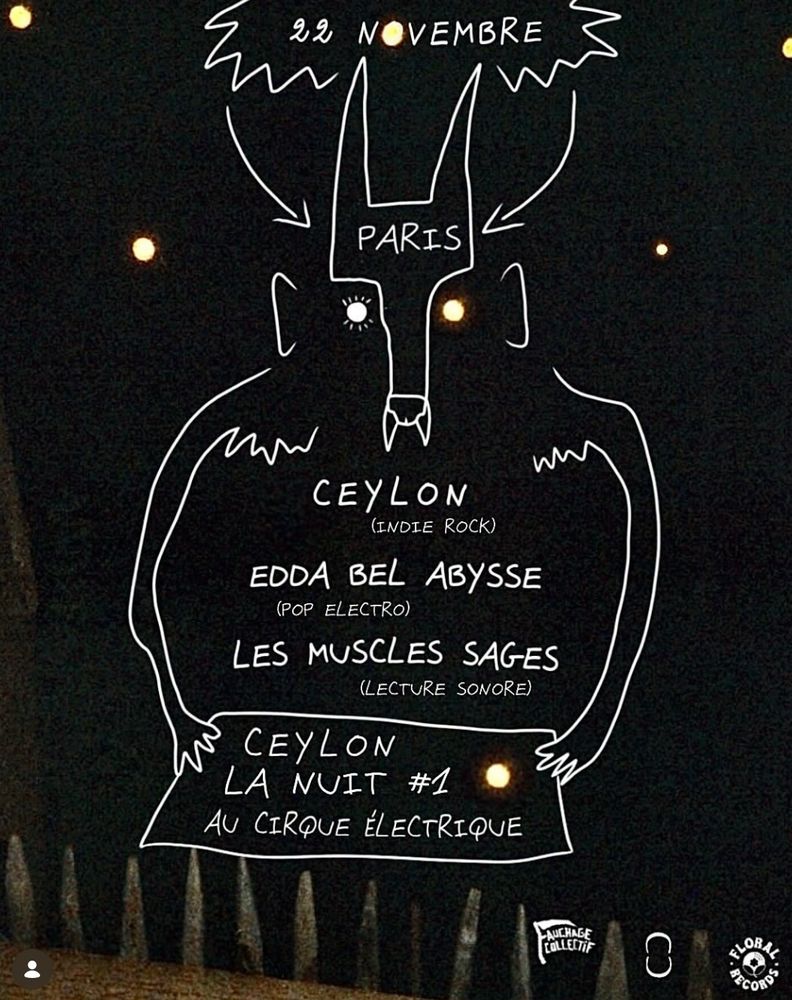 22 NOVEMBRE
PARIS
CEYLON
(INDIE ROCK)
EDDA BEL ABYSSE
(POP ELECTRO)
LES MUSCLES SAGES
(LECTURE SONORE)
CEYLON
LA NUIT #1
AU CIRQUE ÉLECTRIQUE
FAUCHAGE
COLLECTIF
FLORAL
RECORDS